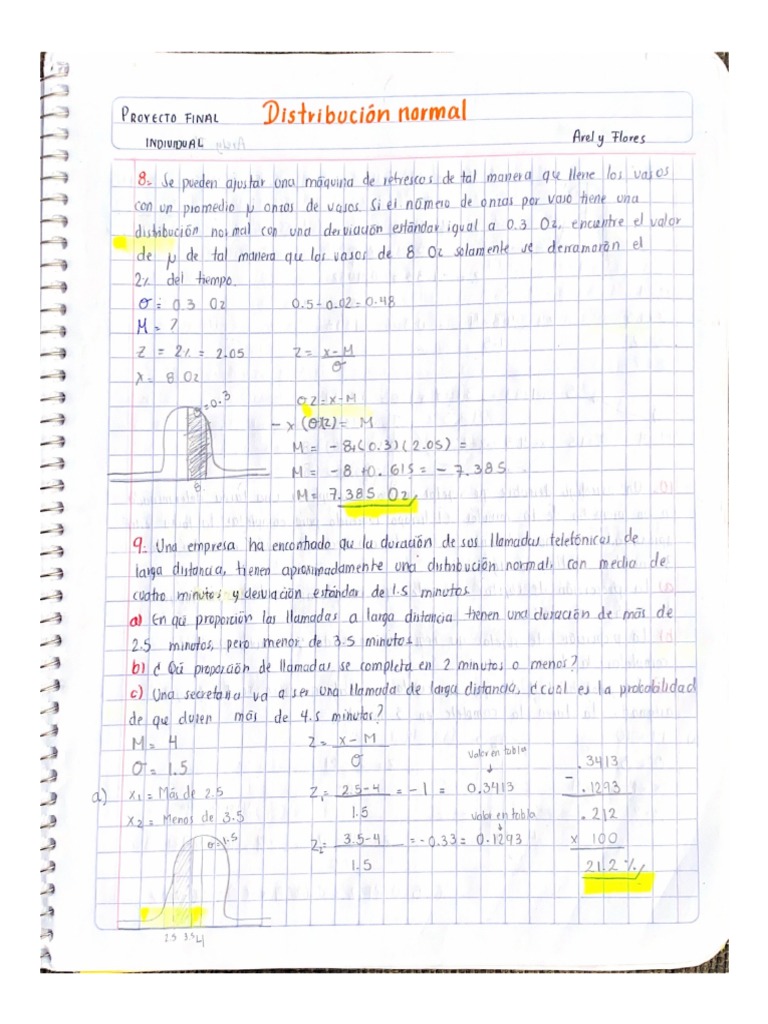 PROYECTO FINAL Distribución normal
INDIVIDUAL Arely Flores
8. Se pueden ajustar una máquina de refrescos de tal manera que llene los vasos
con un promedio μ onzas de vasos. Si el número de onzas por vaso tiene una
distribución normal con una derviación estándar igual a 0.3 Oz, encuntre el valor
de μ de tal manera que los vasos de 8 Oz solamente se derramarán el
2% del tiempo.
σ = 0.3 Oz 0.5 - 0.02 = 0.48
M = ?
Z = 2% = 2.05 Z = x - M
σ
X = 8 Oz
σ = 0.3
σz = x - M
- x (σ)(z) = M
M = -8+(0.3)(2.05) =
M = -8 + 0.615 = - 7.385
M = 7.385 Oz
8
9. Una empresa ha encontrado que la duración de sus llamadas telefónicas de
larga distancia, tienen aproximadamente una distribución normal, con media de
cuatro minutos y desviación estándar de 1.5 minutos
a) En qué proporción las llamadas a larga distancia tienen una duración de más de
2.5 minutos, pero menor de 3.5 minutos.
b) ¿ Qué proporción de llamadas se completa en 2 minutos o menos?
c) Una secretaria va a ser una llamada de larga distancia, ¿cual es la probabilidad
de que duren más de 4.5 minutos?
M = 4 Z = x - M
σ
σ = 1.5
Valor en tabla
a) X1 = Más de 2.5 Z1 = 2.5 - 4 = -1 = 0.3413
1.5
X2 = Menos de 3.5
Valor en tabla
Z2 = 3.5 - 4 = -0.33 = 0.1293
1.5
.3413
- .1293
.212
x 100
21.2 %
σ = 1.5
2.5 3.5 4